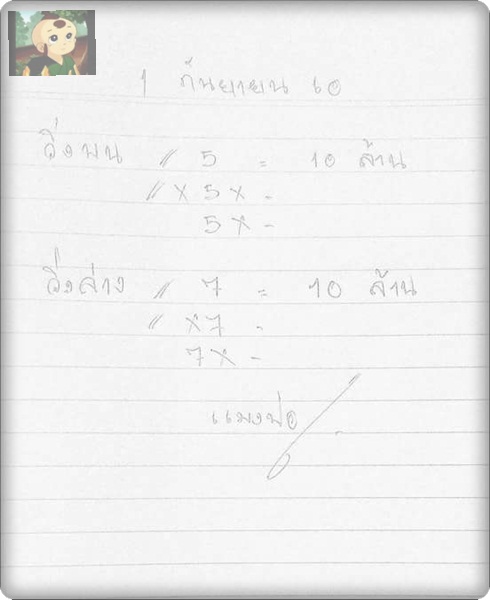 1 กันยายน 60
วิ่งบน // 5 = 10 ล้าน
// x 5 x -
5 x -
วิ่งล่าง // 7 = 10 ล้าน
// x 7 -
7 x -
แมงปอ